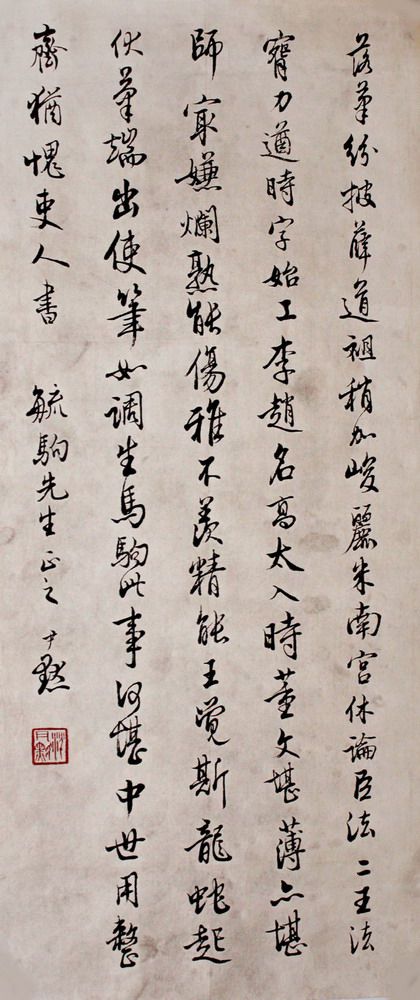 落筆紛披薛道祖稍加峻麗米南宮休論臣法二王法
力遒時字始工李趙名高太入時董文堪薄亦堪
師冣嫌爛熟能傷雅不羨精能王覺斯龍蛇起
伏筆端出使筆如調生馬駒此事何堪中世用整
齊猶愧吏人書 毓駒先生正之 尹默